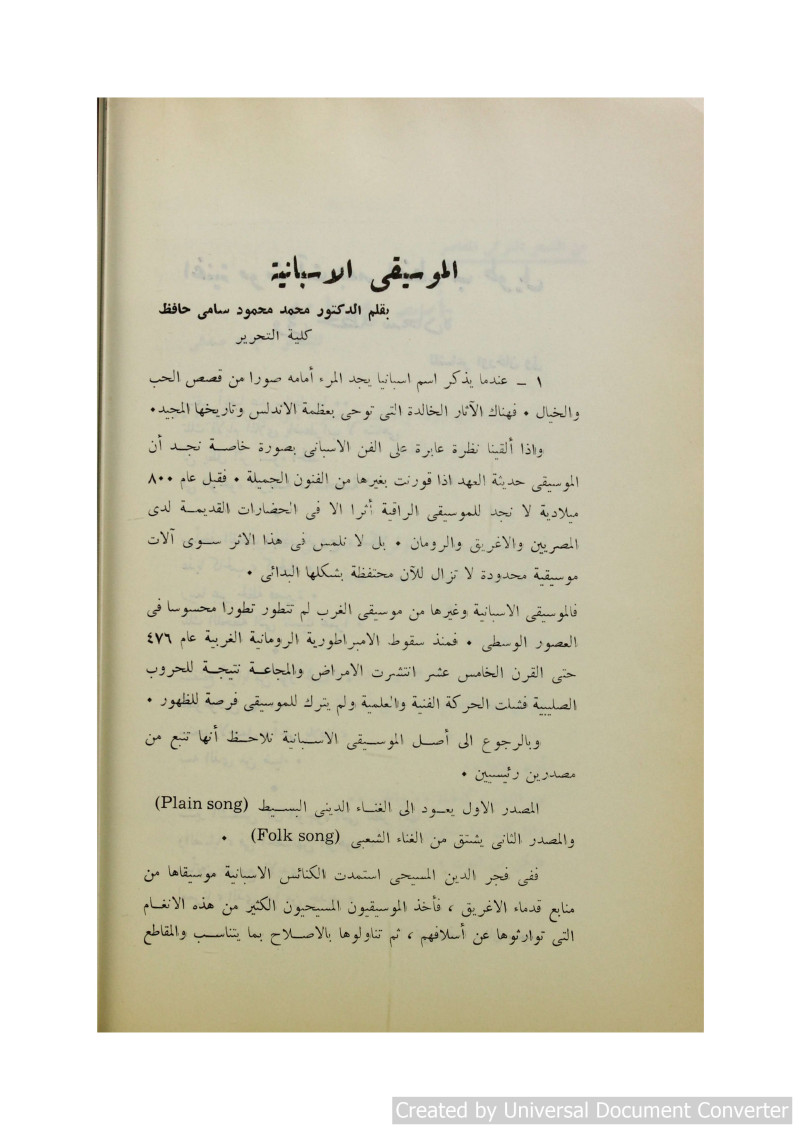 الموسيقى الاسبانية
بقلم الدكتور محمد محمود سامى حافظ
كلية التحرير
١ – عندما يذكر اسم اسبانيا يجد المرء أمامه صورا من قصص الحب
والخيال ٠ فهناك الآثار الخالدة التى توحى بعظمة الاندلس وتاريخها المجيد٠
واذا ألقينا نظرة عابرة على الفن الاسبانى بصورة خاصة نجد أن
الموسيقى حديثة العهد اذا قورنت بغيرها من الفنون الجميلة ٠ فقبل عام ٨٠٠
ميلادية لا نجد للموسيقى الراقية أثرا الا فى الحضارات القديمة لدى
المصريين والاغريق والرومان ٠ بل لا نلمس فى هذا الاثر سوى آلات
موسيقية محدودة لا تزال للآن محتفظة بشكلها البدائى ٠
فالموسيقى الاسبانية وغيرها من موسيقى الغرب لم تتطور تطورا محسوسا فى
العصور الوسطى ٠ فمنذ سقوط الامبراطورية الرومانية الغربية عام ٤٧٦
حتى القرن الخامس عشر انتشرت الامراض والمجاعة نتيجة للحروب
الصليبية فشلت الحركة الفنية والعلمية ولم يترك للموسيقى فرصة للظهور ٠
وبالرجوع الى أصل الموسيقى الاسبانية نلاحظ أنها تنبع من
مصدرين رئيسيين ٠
المصدر الاول يعود الى الغناء الدينى البسيط (Plain song)
والمصدر الثانى يشتق من الغناء الشعبى (Folk song) ٠
ففى فجر الدين المسيحى استمدت الكنائس الاسبانية موسيقاها من
منابع قدماء الاغريق ، فأخذ الموسيقيون المسيحيون الكثير من هذه الانغام
التى توارثوها عن أسلافهم ، ثم تناولوها بالاصلاح بما يتناسب والمقاطع
Created by Universal Document Converter